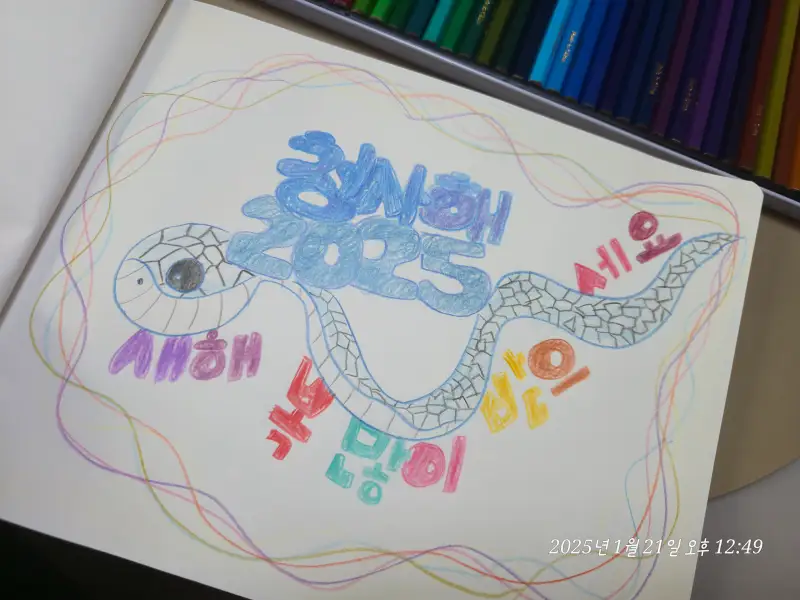 청사해
2025
새해 복 많이 받으세요
2025년 1월 21일 오후 12:49